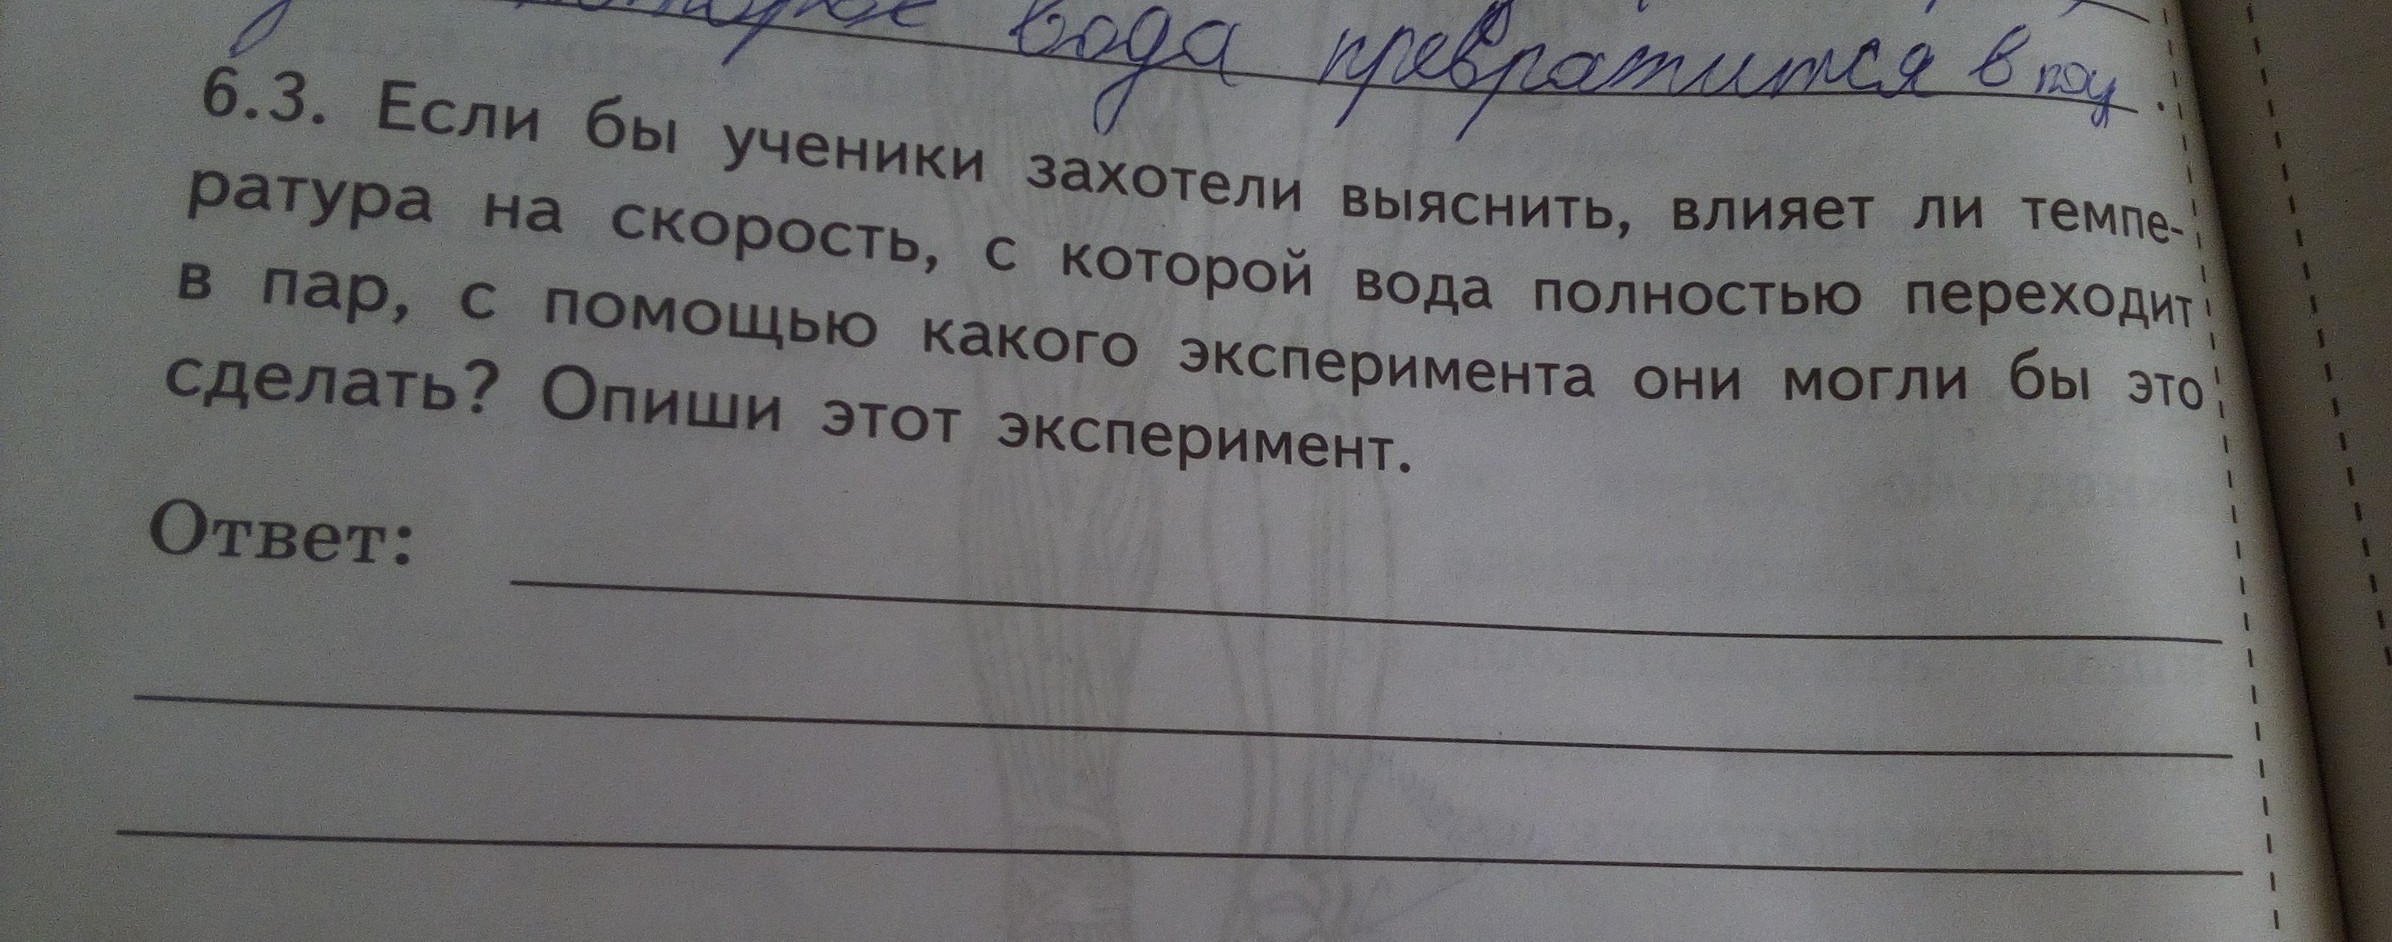 вода превратится в
6.3. Если бы ученики захотели выяснить, влияет ли темпе-
ратура на скорость, с которой вода полностью переходит
в пар, с помощью какого эксперимента они могли бы это
сделать? Опиши этот эксперимент.
Ответ: